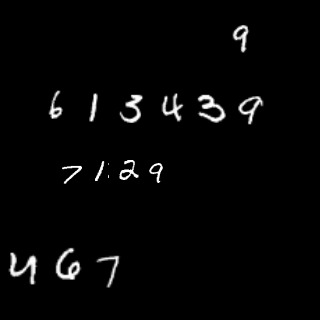 9
6 1 3 4 3 9
7 1 2 9
4 6 7